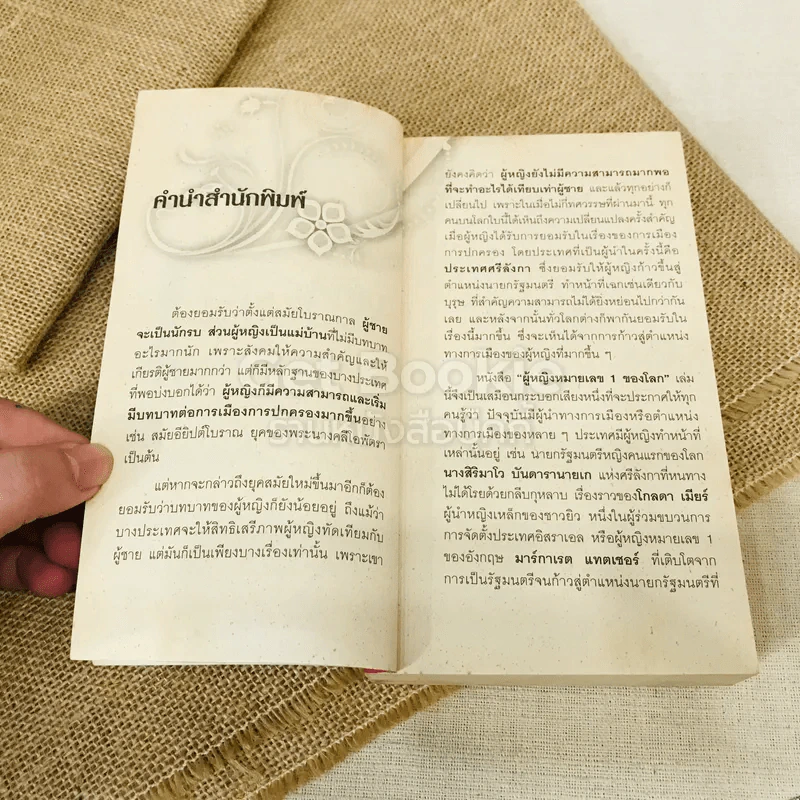 คำนำสำนักพิมพ์
ต้องยอมรับว่าตั้งแต่สมัยโบราณกาล ผู้ชาย
จะเป็นนักรบ ส่วนผู้หญิงเป็นแม่บ้านที่ไม่มีบทบาท
อะไรมากนัก เพราะสังคมให้ความสำคัญและให้
เกียรติผู้ชายมากกว่า แต่ก็มีหลักฐานของบางประเทศ
ที่พอบ่งบอกได้ว่า ผู้หญิงก็มีความสามารถและเริ่ม
มีบทบาทต่อการเมืองการปกครองมากขึ้นอย่าง
เช่น สมัยอียิปต์โบราณ ยุคของพระนางคลีโอพัตรา
เป็นต้น
แต่หากจะกล่าวถึงยุคสมัยใหม่ขึ้นมาอีกก็ต้อง
ยอมรับว่าบทบาทของผู้หญิงก็ยังน้อยอยู่ ถึงแม้ว่า
บางประเทศจะให้สิทธิเสรีภาพผู้หญิงทัดเทียมกับ
ผู้ชาย แต่มันก็เป็นเพียงบางเรื่องเท่านั้น เพราะเขา
ยังคงคิดว่า ผู้หญิงยังไม่มีความสามารถมากพอ
ที่จะทำอะไรได้เทียบเท่าผู้ชาย และแล้วทุกอย่างก็
เปลี่ยนไป เพราะในเมื่อไม่กี่ทศวรรษที่ผ่านมานี้ ทุก
คนบนโลกใบนี้ได้เห็นถึงความเปลี่ยนแปลงครั้งสำคัญ
เมื่อผู้หญิงได้รับการยอมรับในเรื่องของการเมือง
การปกครอง โดยประเทศที่เป็นผู้นำในครั้งนี้คือ
ประเทศศรีลังกา ซึ่งยอมรับให้ผู้หญิงก้าวขึ้นสู่
ตำแหน่งนายกรัฐมนตรี ทำหน้าที่เฉกเช่นเดียวกับ
บุรุษ ที่สำคัญความสามารถไม่ได้ยิ่งหย่อนไปกว่ากัน
เลย และหลังจากนั้นทั่วโลกต่างก็พากันยอมรับใน
เรื่องนี้มากขึ้น ซึ่งจะเห็นได้จากการก้าวสู่ตำแหน่ง
ทางการเมืองของผู้หญิงที่มากขึ้น ๆ
หนังสือ “ผู้หญิงหมายเลข 1 ของโลก” เล่ม
นี้จึงเป็นเสมือนกระบอกเสียงหนึ่งที่จะประกาศให้ทุก
คนรู้ว่า ปัจจุบันมีผู้นำทางการเมืองหรือตำแหน่ง
ทางการเมืองของหลาย ๆ ประเทศมีผู้หญิงทำหน้าที่
เหล่านั้นอยู่ เช่น นายกรัฐมนตรีหญิงคนแรกของโลก
นางสิริมาโว บันดารานายเก แห่งศรีลังกาที่หนทาง
ไม่ได้โรยด้วยกลีบกุหลาบ เรื่องราวของโกลดา เมียร์
ผู้นำหญิงเหล็กของชาวยิว หนึ่งในผู้ร่วมขบวนการ
การจัดตั้งประเทศอิสราเอล หรือผู้หญิงหมายเลข 1
ของอังกฤษ มาร์กาเรต แทตเชอร์ ที่เติบโตจาก
การเป็นรัฐมนตรีจนก้าวสู่ตำแหน่งนายกรัฐมนตรีที่